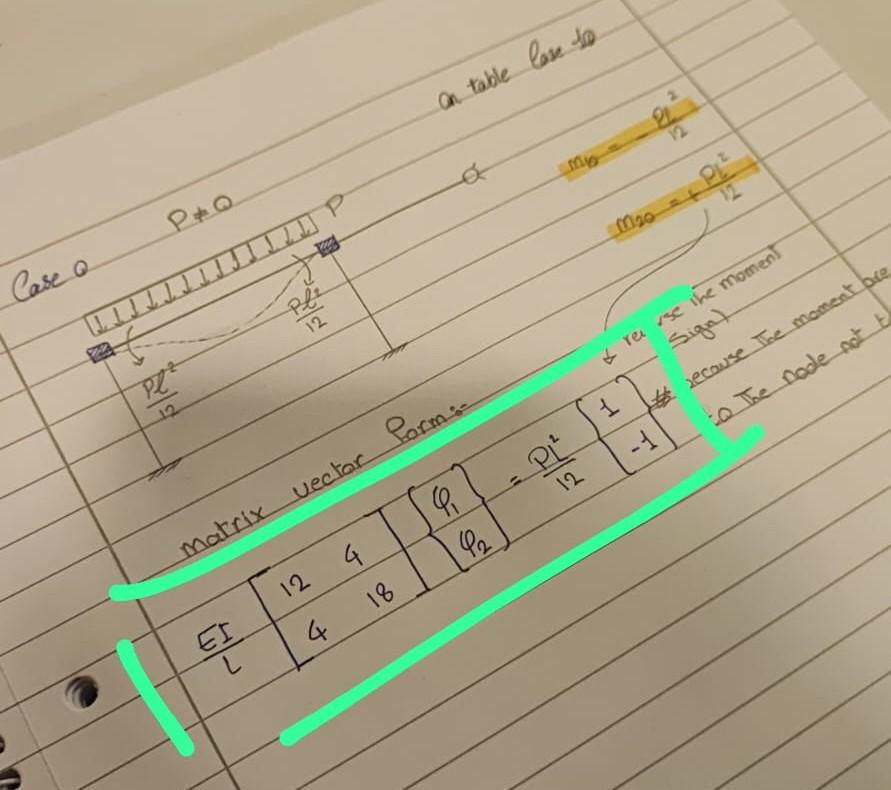 on table Case 10
m10 = - Pl²/12
P≠0
P
m20 = + Pl²/12
Case 0
Pl²/12
Pl²/12
the moment
Sign)
because the moment are
to the node not
matrix vector form:-
EI/L [12 4; 4 18] {φ1; φ2} = PL²/12 {1; -1}